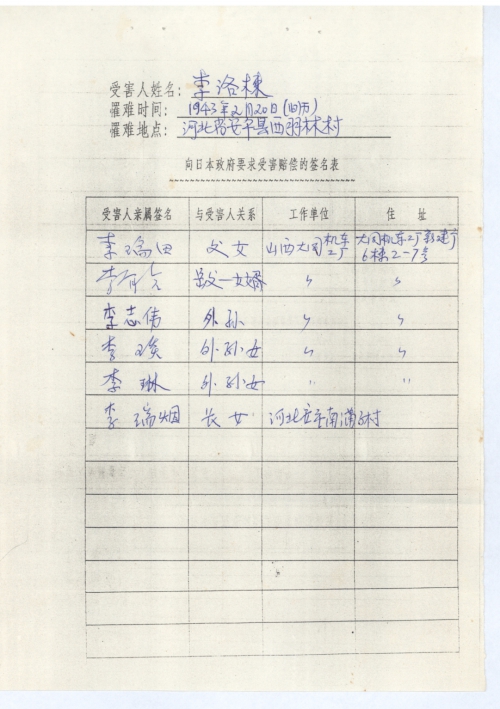 受害人姓名：李洛栋
罹难时间：1943年2月20日（旧历）
罹难地点：河北省安平县西羽林村
向日本政府要求受害赔偿的签名表
受害人亲属签名 与受害人关系 工作单位 住 址
李瑞田 父女 山西大同机车工厂 大同机车工厂新建 6栋2-7号
李 岳父—女婿 〃 〃
李志伟 外孙 〃 〃
李琰 外孙女 〃 〃
李琳 外孙女 〃 〃
李瑞烟 长女 河北安平南满子村